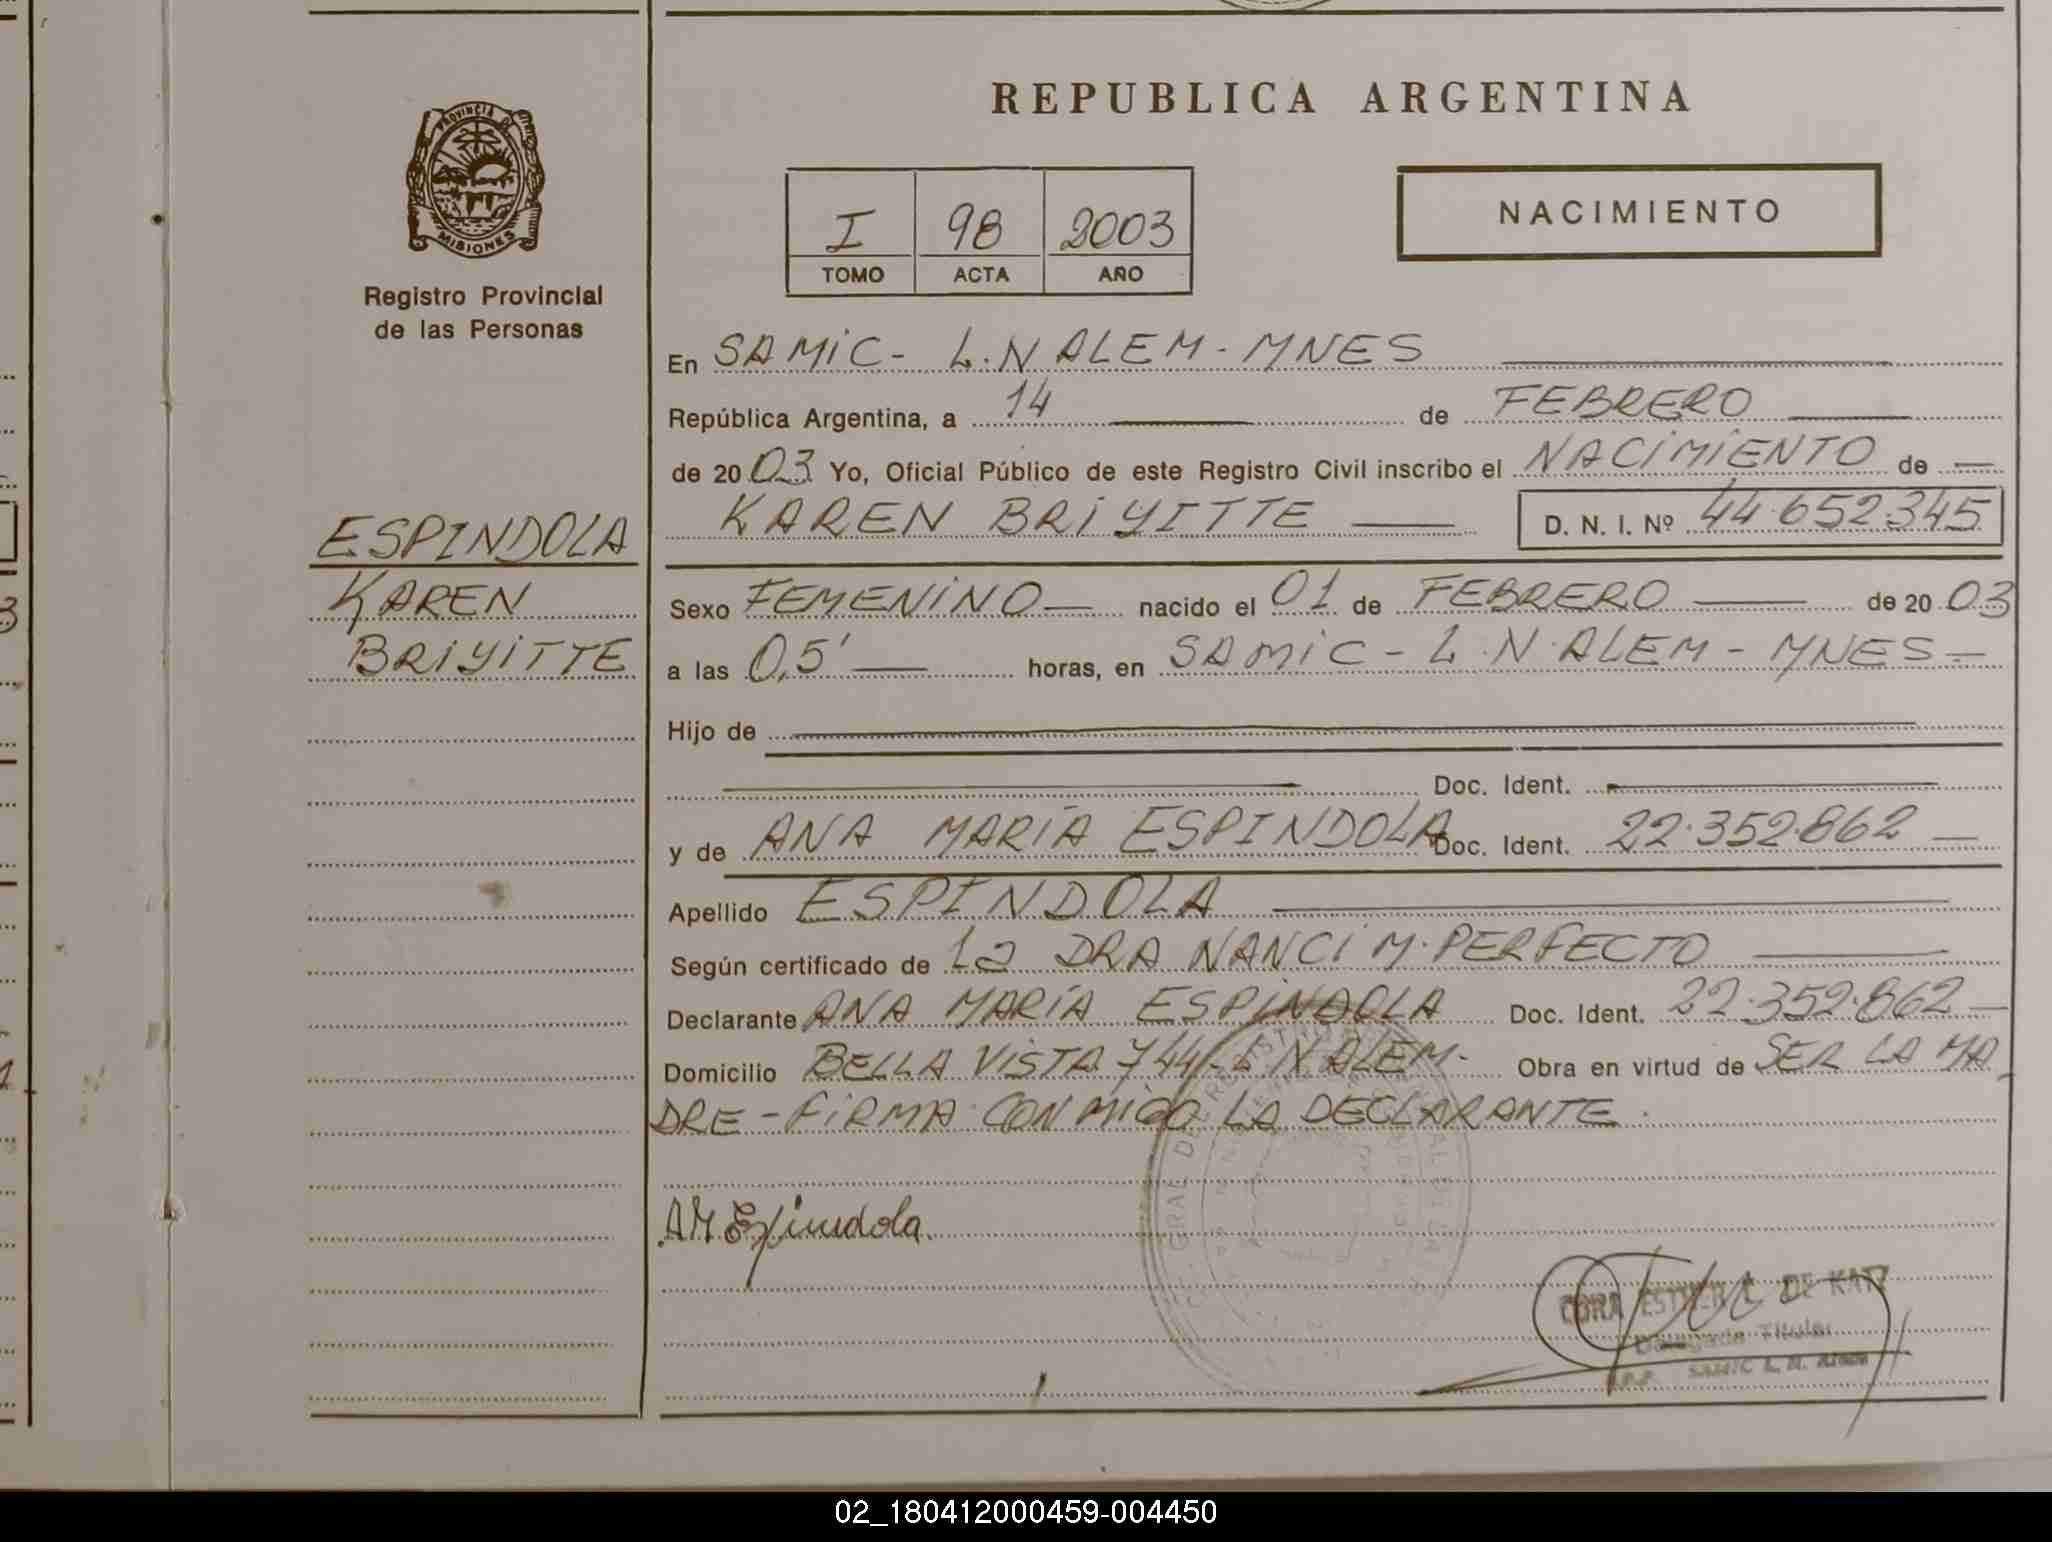 REPUBLICA ARGENTINA
PROVINCIA DE
MISIONES
Registro Provincial
de las Personas
I 98 2003
TOMO ACTA AÑO
NACIMIENTO
En SAMIC - L.N ALEM - MNES
República Argentina, a 14 de FEBRERO
de 2003 Yo, Oficial Público de este Registro Civil inscribo el NACIMIENTO de
KAREN BRIYITTE D. N. I. Nº 44.652.345
ESPINDOLA
KAREN
BRIYITTE
Sexo FEMENINO nacido el 01 de FEBRERO de 2003
a las 0,5' horas, en SAMIC - L.N. ALEM - MNES
Hijo de
Doc. Ident.
y de ANA MARÍA ESPINDOLA Doc. Ident. 22.352.862
Apellido ESPINDOLA
Según certificado de la DRA NANCI M. PERFECTO
Declarante ANA MARÍA ESPINDOLA Doc. Ident. 22.352.862
Domicilio BELLA VISTA 744 - L N ALEM - Obra en virtud de SER LA MA
DRE - FIRMA CONMIGO LA DECLARANTE.
A M Espindola.
DE KATZ
Delegada Titular
SAMIC L. N. Alem
02_180412000459-004450